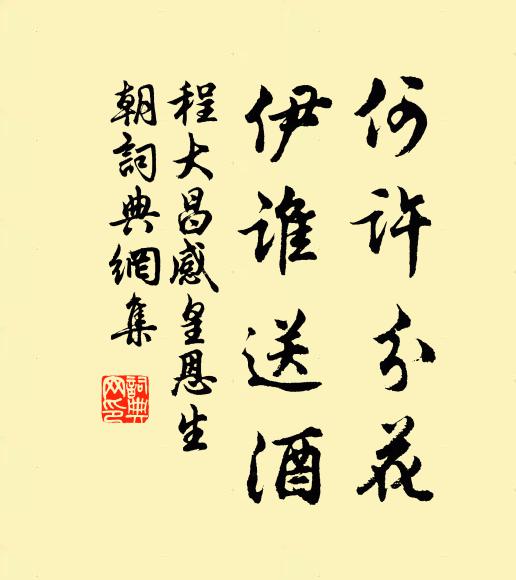 何許分花
伊誰送酒
程大昌感皇恩生
朝詞典網集
詞典
网印